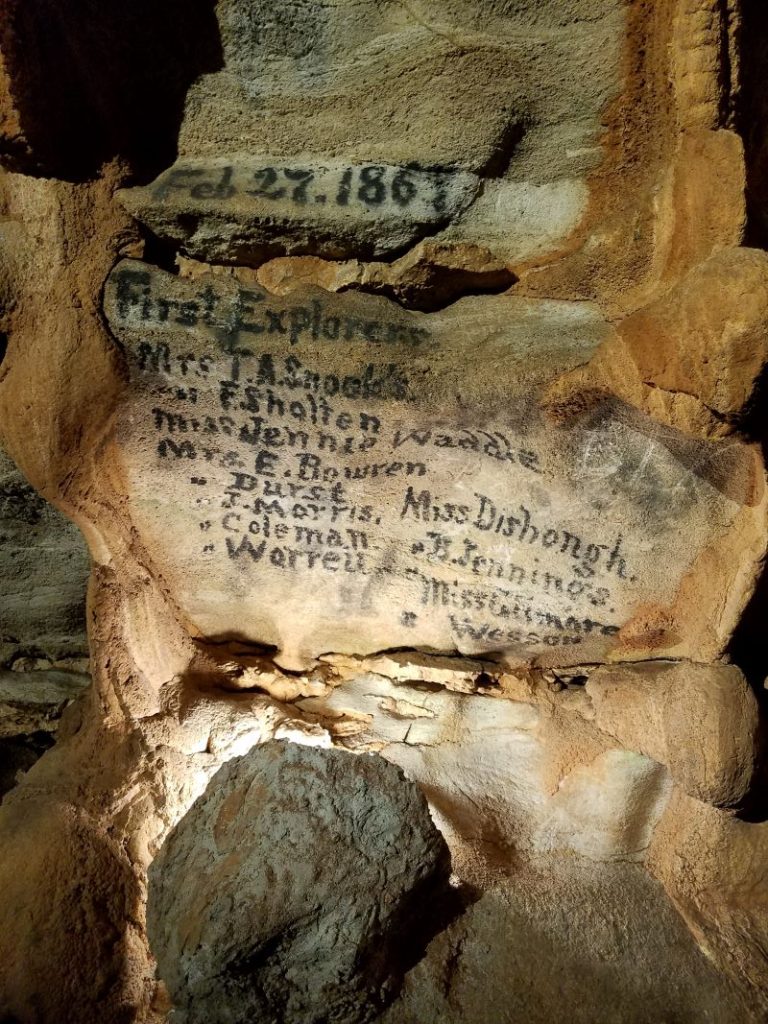 Feb 27. 1867
First Explorers
Mrs T.A. Snook's.
" F. Sholten
Miss Jennie Waddle
Mrs. E. Bowren
" Durst
" J. Morris.
" Coleman
" Warrell
Miss Dishongh.
" B. Jennings.
Miss Gilmore
" Wesson